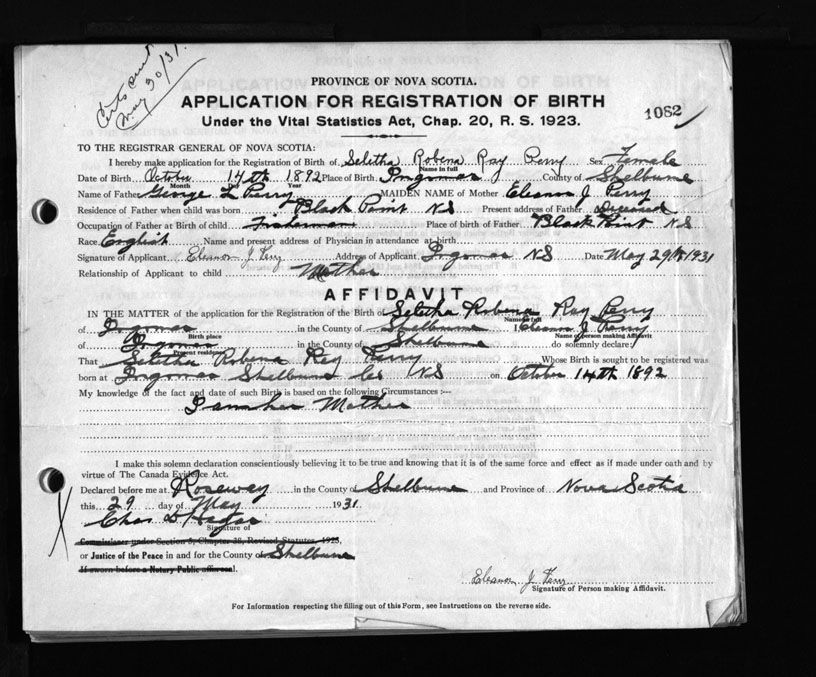 Certs sent
May 30/31.
PROVINCE OF NOVA SCOTIA.
APPLICATION FOR REGISTRATION OF BIRTH
Under the Vital Statistics Act, Chap. 20, R. S. 1923.
1082
TO THE REGISTRAR GENERAL OF NOVA SCOTIA:
I hereby make application for the Registration of Birth of Seletha Robena Ray Perry Sex Female
Name in full
Date of Birth October 14th 1892 Place of Birth Ingomar County of Shelburne
Month Day Year
Name of Father George L Perry MAIDEN NAME of Mother Eleanor J Perry
Residence of Father when child was born Black Point NS Present address of Father Deceased
Occupation of Father at Birth of child Fisherman Place of birth of Father Black Point NS
Race English Name and present address of Physician in attendance at birth
Signature of Applicant Eleanor J. Perry Address of Applicant Ingomar NS Date May 29th 1931
Relationship of Applicant to child Mother
AFFIDAVIT
IN THE MATTER of the application for the Registration of the Birth of Seletha Robena Ray Perry
Name in full
of Ingomar in the County of Shelburne I Eleanor J. Perry
Birth place Name of person making Affidavit
of Ingomar in the County of Shelburne do solemnly declare:
Present residence
That Seletha Robena Ray Perry Whose Birth is sought to be registered was
born at Ingomar Shelburne Co NS on October 14th 1892
My knowledge of the fact and date of such Birth is based on the following Circumstances :—
I am her Mother
I make this solemn declaration conscientiously believing it to be true and knowing that it is of the same force and effect as if made under oath and by
virtue of The Canada Evidence Act.
Declared before me at Roseway in the County of Shelburne and Province of Nova Scotia
this 29 day of May 1931
Chas D Hagar
Signature of
Commissioner under Section 5, Chapter 38, Revised Statutes, 1923,
or Justice of the Peace in and for the County of Shelburne
If sworn before a Notary Public affix seal.
Eleanor J. Perry
Signature of Person making Affidavit.
For Information respecting the filling out of this Form, see Instructions on the reverse side.